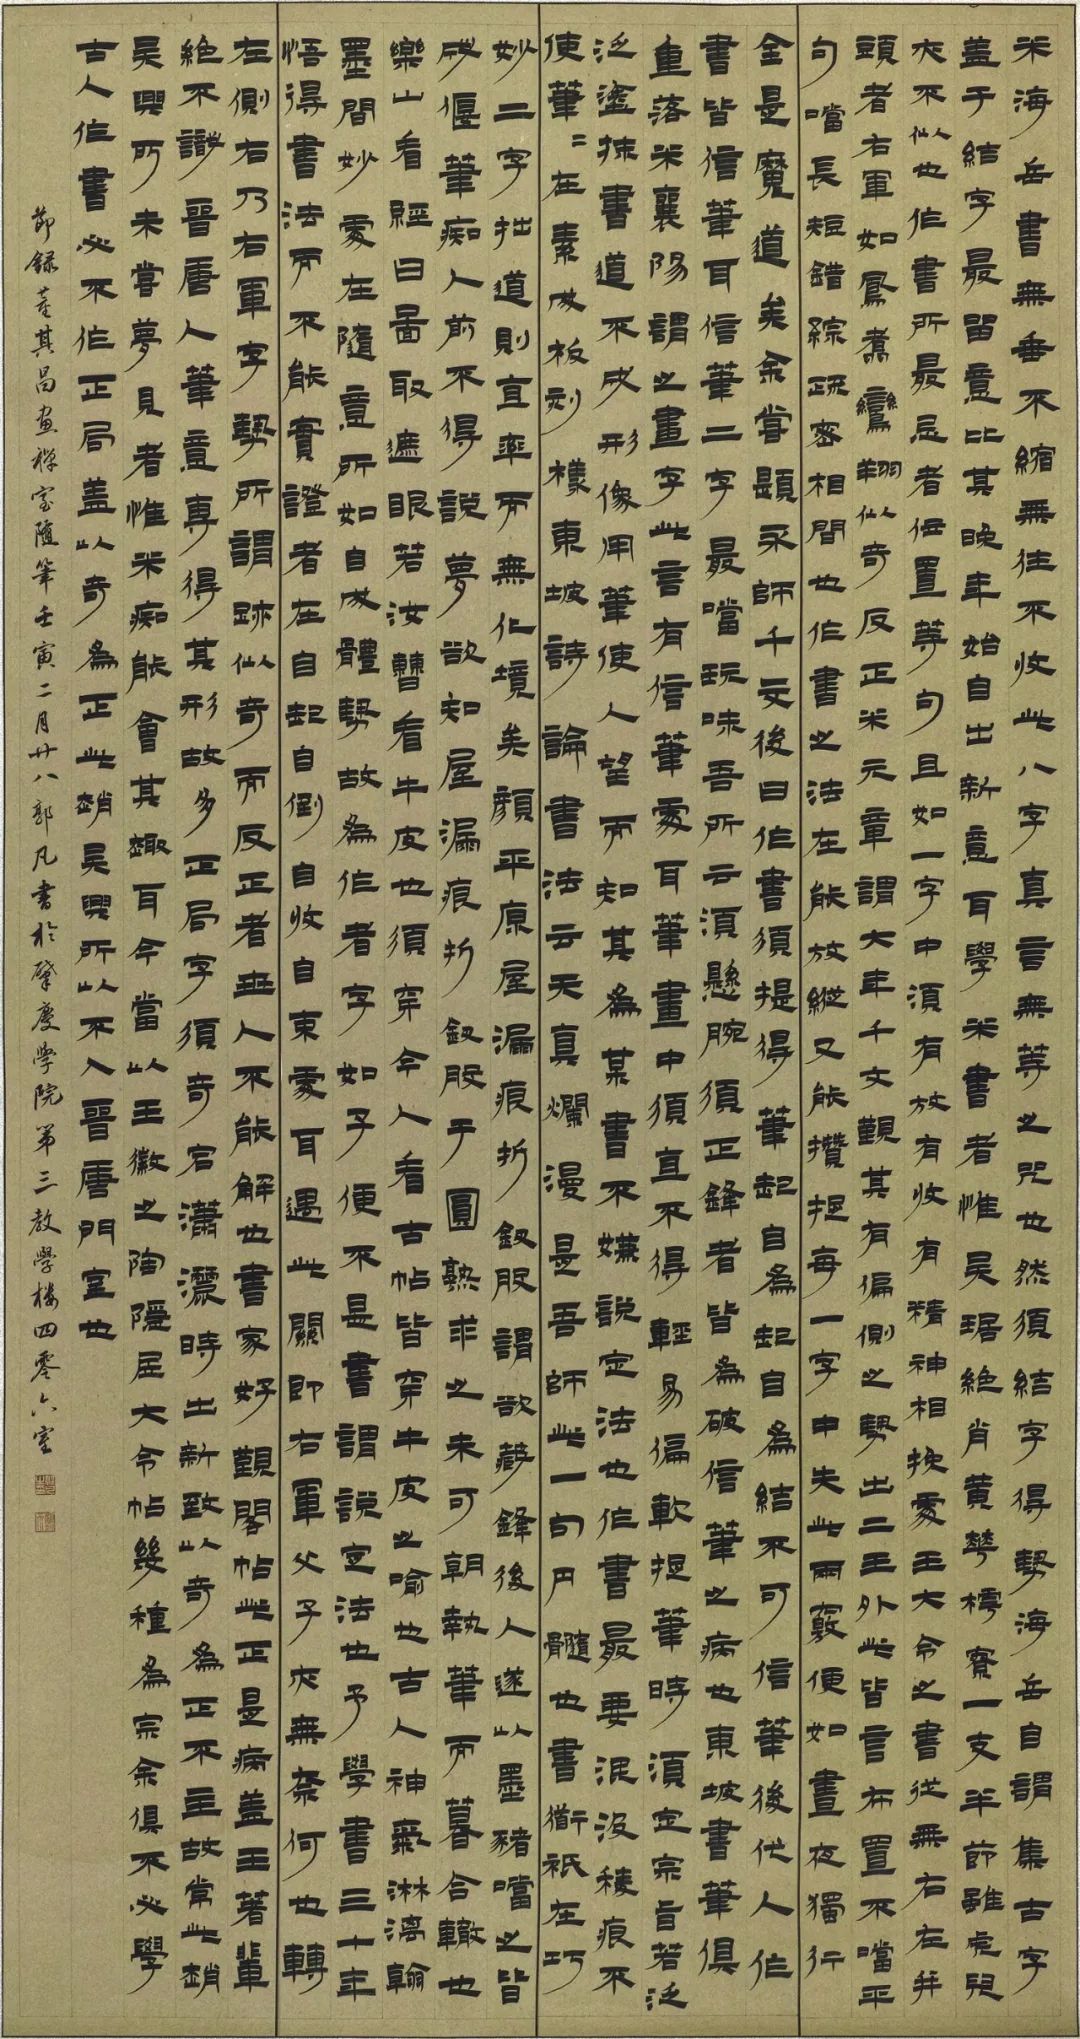 米海岳書無垂不縮無往不收此八字真言無等之咒也然須結字得勢海岳自謂集古字
盖于結字最留意比其晚年始自出新意耳學米書者惟吴琚絶肖黄華樗寮一支半節雖虎兒
亦不似也作書所最忌者位置等匀且如一字中須有放有收有精神相挽處王大令之書從無左右并
頭者右軍如鳳翥鸞翔似奇反正米元章謂大年千文觀其有偏側之勢出二王外此皆言布置不當平
匀當長短錯綜疏密相間也作書之法在能放縱又能攢捉每一字中失此兩竅便如晝夜獨行
全是魔道矣余嘗題永師千文後曰作書須提得筆起自為起自為結不可信筆後代人作
書皆信筆耳信筆二字最當玩味吾所云須懸腕須正鋒者皆為破信筆之病也東坡書筆俱
重落米襄陽謂之畫字此言有信筆處耳筆畫中須直不得輕易偏軟捉筆時須定宗旨若泛
泛塗抹書道不成形像用筆使人望而知其為某書不嫌說定法也作書最要泯没稜痕不
使筆〻在素成板刻樣東坡詩論書法云天真爛漫是吾師此一句丹髓也書道祇在巧
妙二字拙道則直率而無化境矣顔平原屋漏痕折釵股謂欲藏鋒後人遂以墨豬當之皆
成偃筆痴人前不得說夢欲知屋漏痕折釵股于圓熟求之未可朝執筆而暮合轍也
樂山看經曰啚取遮眼若汝曹看牛皮也須穿今人看古帖皆穿牛皮之喻也古人神氣淋漓翰
墨間妙處在隨意所如自成體勢故為作者字如子便不是書謂說定法也予學書三十年
悟得書法而不能實證者在自起自倒自收自束處耳過此關即右軍父子亦無奈何也轉
左側右乃右軍字勢所謂跡似奇而反正者世人不能解也書家好觀閣帖此正是病盖王著輩
絶不識晉唐人筆意專得其形故多正局字須奇宕瀟灑時出新致以奇為正不主故常此趙
吴興所未嘗夢見者惟米痴能會其趣耳今當以王徽之陶隱居大令帖幾種為宗余俱不必學
古人作書必不作正局盖以奇為正此趙吴興所以不入晉唐門室也
節錄董其昌画禅室隨筆壬寅二月廿八郭凡書於肇慶學院第三教學樓四零六室